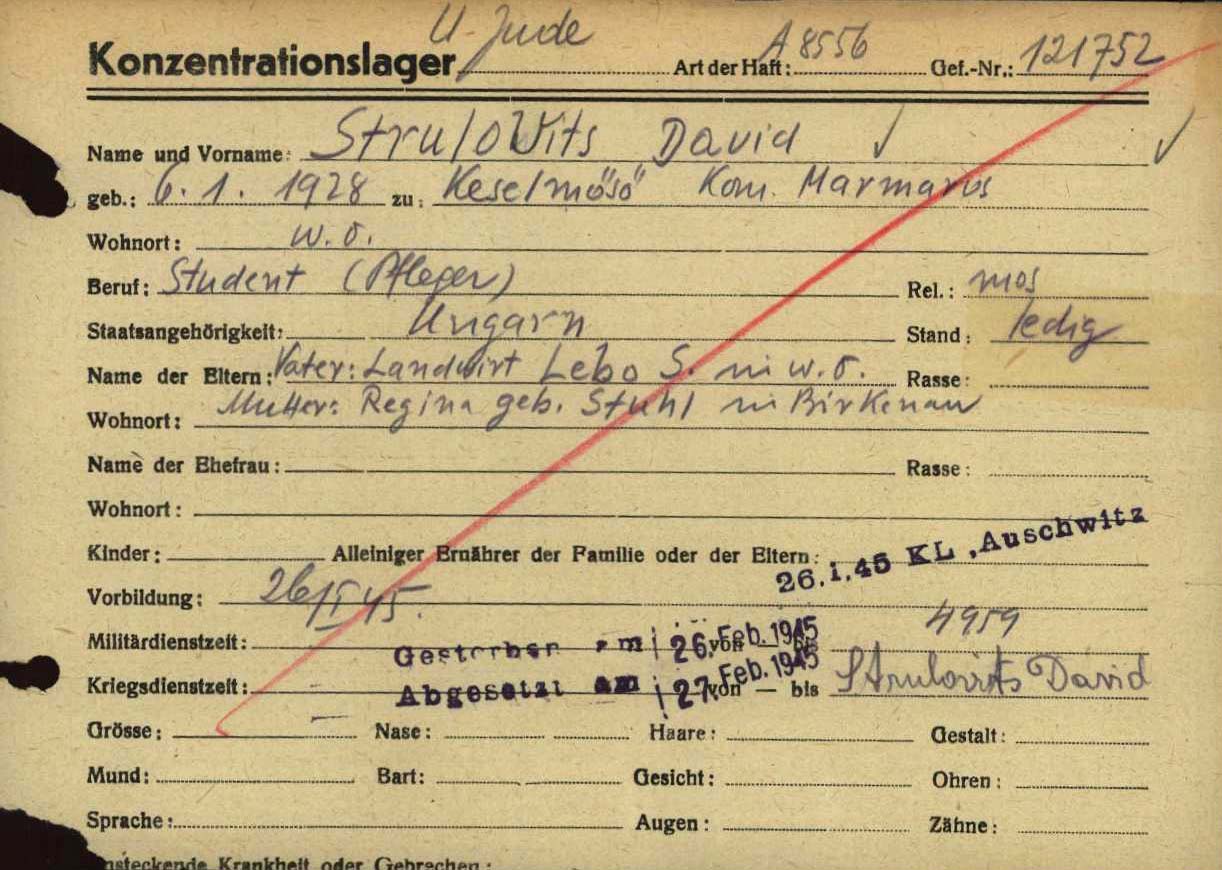 U-Jude
Konzentrationslager Art der Haft: A 8556 Gef.-Nr.: 121752
Name und Vorname: Strulowits David
geb.: 6.1.1928 zu: Keselmösö Kom. Marmaros
Wohnort: w.o.
Beruf: Student (Pfleger) Rel.: mos
Staatsangehörigkeit: Ungarn Stand: ledig
Name der Eltern: Vater: Landwirt Lebo S. in w.o. Rasse:
Mutter: Regina geb. Stuhl in Birkenau
Wohnort:
Name der Ehefrau: Rasse:
Wohnort:
Kinder: Alleiniger Ernährer der Familie oder der Eltern:
26.1.45 KL. Auschwitz
Vorbildung: 26/I 45.
Militärdienstzeit: von — bis 4959
Gestorben am 26. Feb. 1945
Kriegsdienstzeit: von — bis Strulovits David
Abgesetzt am 27. Feb. 1945
Grösse: Nase: Haare: Gestalt:
Mund: Bart: Gesicht: Ohren:
Sprache: Augen: Zähne:
nsteckende Krankheit oder Gebrechen: